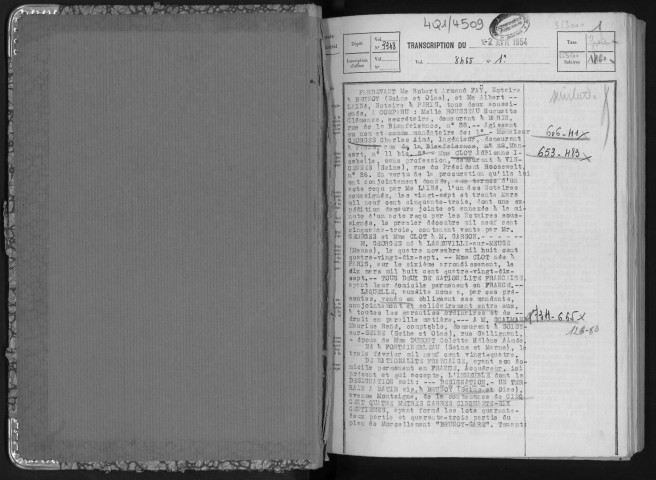 4Q1/4509
1
Dépôt
Vol. N° 9348
TRANSCRIPTION DU 2 AVR 1954
Taxe
Vol. 8465 N° 1
Salaires
PARDEVANT Me Robert Armand FAY, Notaire
à BRUNOY (Seine et Oise), et Me Albert
LAINE, Notaire à PARIS, tous deux soussi-
gnés, A COMPARU : Melle ROUSSEAU Huguette
Clémence, secrétaire, demeurant à PARIS,
rue de la Bienfaisance, n° 38.-- Agissant
au nom et comme mandataire de: 1° - Monsieur
GEORGES Charles Aimé, ingénieur, demeurant
n° 11 bis. 2° - Mme CLOT Adrienne I-
sabelle, sans profession, demeurant à VIN-
CENNES (Seine), rue du Président Roosevelt,
n° 26. En vertu de la procuration qu'ils lui
ont conjointement donnée, aux termes d'un
acte reçu par Me LAINE, l'un des Notaires
soussignés, les vingt-sept et trente Mars
mil neuf cent cinquante-trois, dont une ex-
pédition demeure jointe et annexée à la mi-
nute d'un acte reçu par les Notaires sous-
signés, le premier décembre mil neuf cent
cinquante-trois, contenant vente par Mr.
GEORGES et Mme CLOT à M. GARSON.
M. GEORGES né à LANEUVILLE-sur-MEUSE
(Meuse), le quatre novembre mil huit cent
quatre-vingt-dix-sept. -- Mme CLOT née à
PARIS, sur le sixième arrondissement, le
dix mars mil huit cent quatre-vingt-dix-
sept.-- TOUS DEUX DE NATIONALITE FRANCAISE,
ayant leur domicile permanent en FRANCE.--
LAQUELLE, ès-dits noms a, par ces pré-
sentes, vendu en obligeant ses mandants,
conjointement et solidairement entre eux,
à toutes les garanties ordinaires et de
droit en pareille matière,--- A M.
Maurice René, comptable, demeurant à SOISY-
sur-SEINE (Seine et Oise), rue Gallignani,
- époux de Mme DUMONT Colette Hélène Aimée.
Né à FONTAINEBLEAU (Seine et Marne), le
trois février mil neuf cent vingt-quatre.
DE NATIONALITE FRANCAISE, ayant son do-
micile permanent en FRANCE, Acquéreur, ici
présent et qui accepte, L'IMMEUBLE dont la
DESIGNATION suit: --- DESIGNATION.- UN TER-
RAIN A BATIR sis à BRUNOY (Seine et Oise),
avenue Montaigne, de la contenance de CINQ
CENT QUATRE METRES CARRES CINQUANTE-DIX
CENTIEMES, ayant formé les lots quarante-
deux partie et quarante-trois partie du
plan de Morcellement "BRUNOY-GARE". Tenant:
606-41
653-483